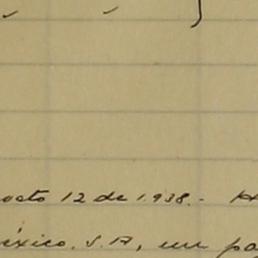 osto 12 de 1.938.-
éxico. S. A, un pa